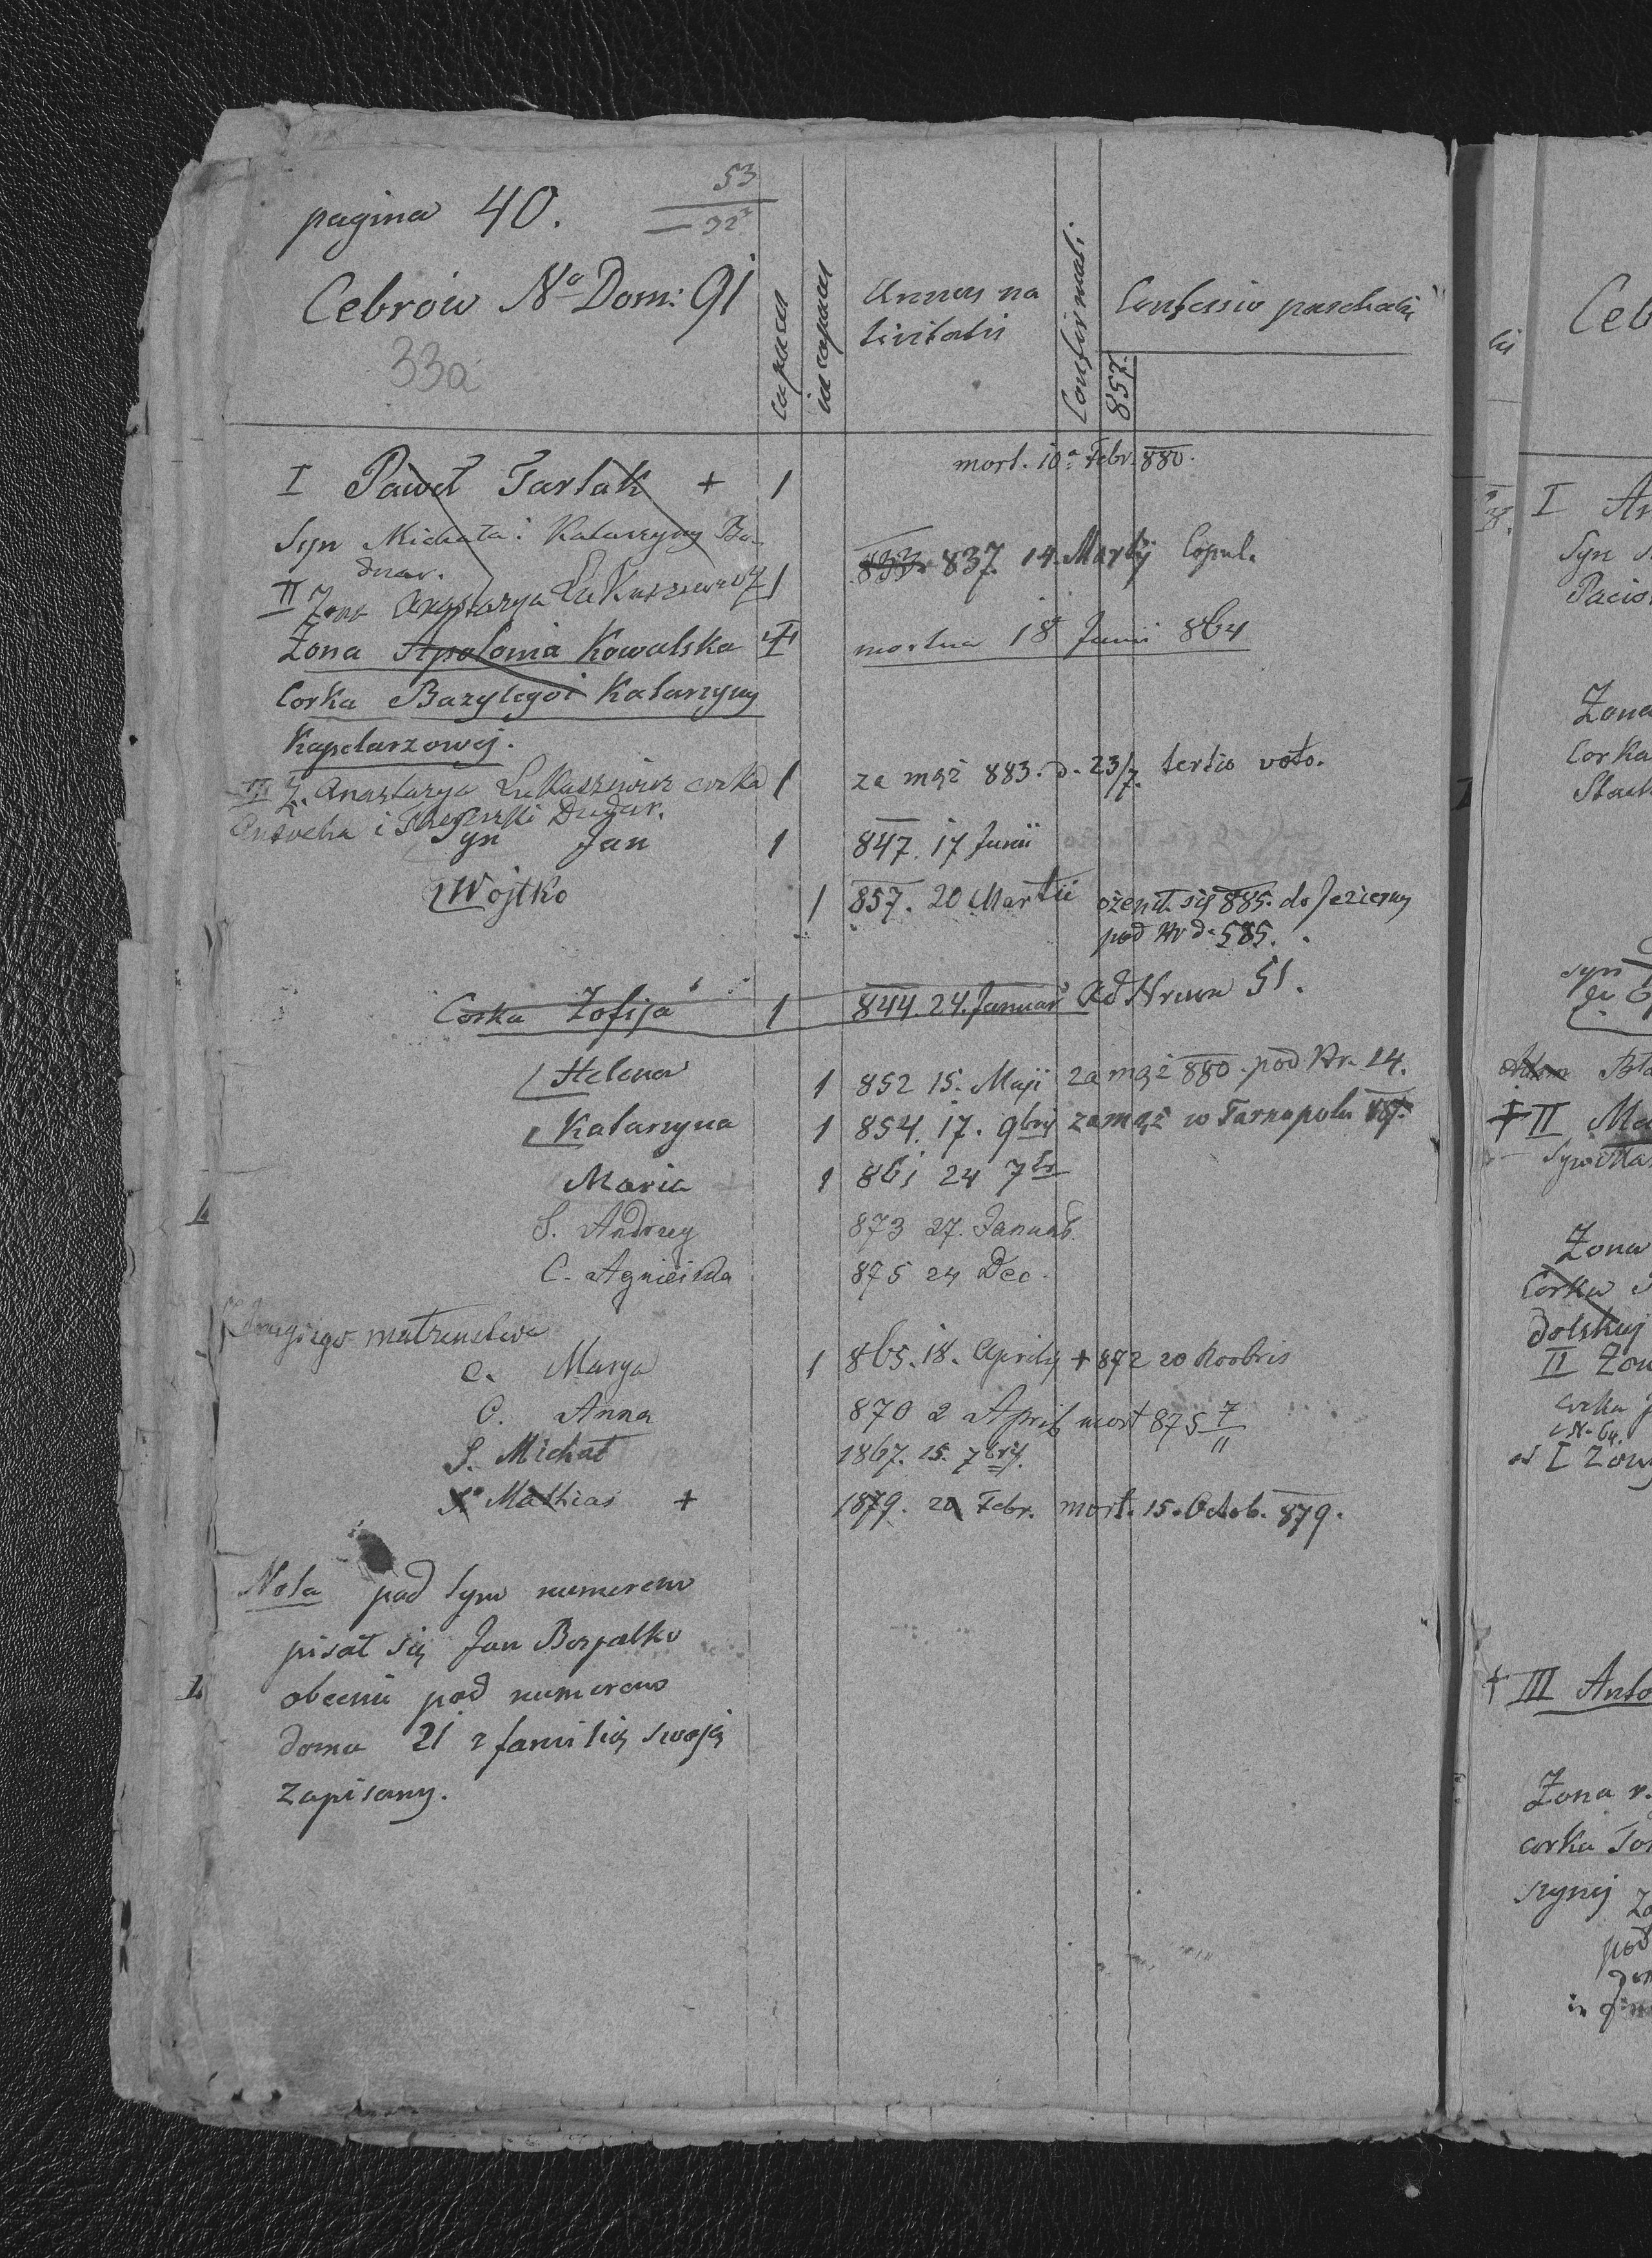 53
pagina 40.
— 32
Cebrów No Dom: 91
33a
capaces
incapaces
Annus na
tivitatis
Confirmati
Confessio paschalis
857.
mort. 10a Febr. 880.
I Paweł Tarłak + 1
Syn Michała i Katarzyny Bo-
dnar.
833. 837. 14. Martij Copul.
II Żona Anastazya Łukaszewicz 1
Żona Apolonia Kowalska + mortua 18 Junii 864
Corka Bazylego i Katarzyny
Kapelarzowej.
II Ż. Anastazya Łukaszewicz corka 1 za mąż 883. d. 23/7. tertio voto.
i Dudar.
Syn Jan 1 847. 17 Junii
Wojtko 1 857. 20 Martii ożenił się 885. do Jezierny
pod Nr d. 585.
Corka Zofija 1 844. 24. Januar Ad Nrum 51.
Helena 1 852 15. Maji za mąż 880. pod Nr. 14.
Katarzyna 1 854. 17. 9bris za mąż w Tarnopolu
Maria 1 861 24 7br
S. Andrzej 873 27. Januar.
C. Agnieszka 875 24 Dec.
Z drugiego małżeństwa
C. Marya 1 865. 18. Aprilis + 872 20 Novbris
C. Anna 870 2 April mort 875 7/11
S. Michał 1867. 15. 7bris.
S. Mathias + 1879. 20 Febr. mort. 15. Octob. 879.
Nota pod tym numerem
pisał się Jan Bospałko
obecnie pod numerem
domu 21 z familią swoją
zapisany.
Ceb
I
Syn
Żona
Corka
syn
II
Żona
Corka
II
corka
I
III Anto
Żona
corka
pod